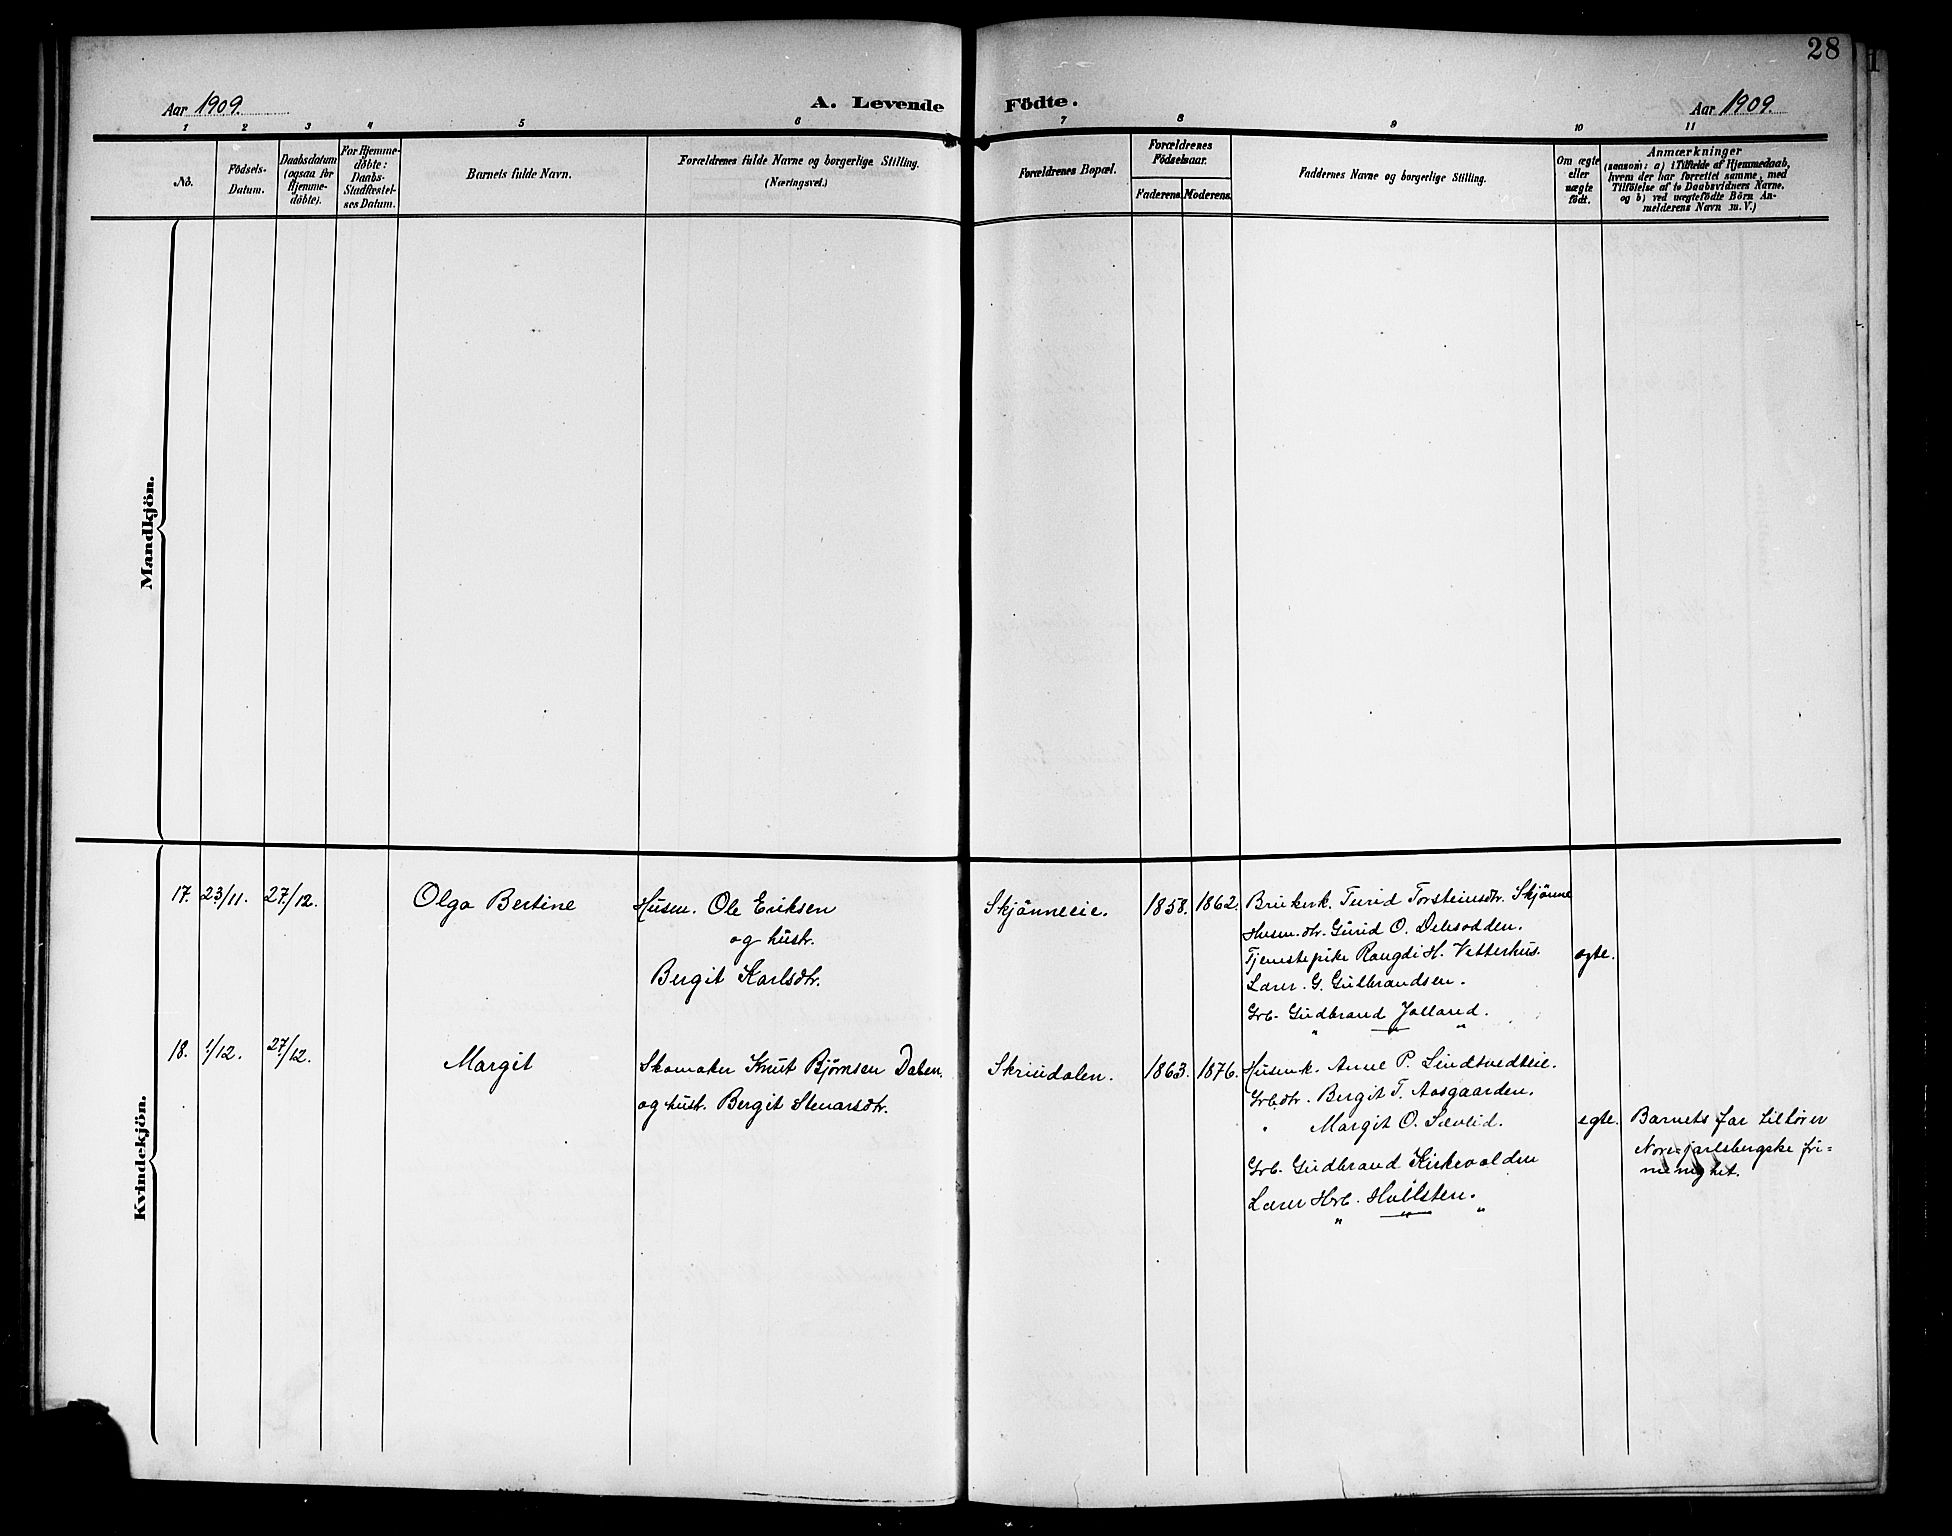 28
Aar 1909.
A. Levende Födte.
Aar 1909.
1 2 3 4 5 6 7 8 9 10 11
No.
Födsels-
Datum.
Daabsdatum
(ogsaa for
Hjemme-
döbte).
For Hjemme-
döbte:
Daabs-
Stadfæstel-
ses Datum.
Barnets fulde Navn.
Forældrenes fulde Navne og borgerlige Stilling.
(Næringsvei.)
Forældrenes Bopæl.
Forældrenes
Födselsaar.
Faderens. Moderens.
Faddernes Navne og borgerlige Stilling.
Om ægte
eller
uægte
født.
Anmærkninger
(saasom: a) i Tilfælde af Hjemmedaab,
hvem der har forrettet samme, med
Tilföielse af to Daabsvidners Navne,
og b) ved uægtefödte Börn An-
melderens Navn m. V.)
Mandkjön.
Kvindekjön.
17. 23/11. 27/12. Olga Bertine
Husm. Ole Eriksen
og hustr.
Bergit Karlsdtr.
Skjönneeie. 1858. 1862.
Brukerk. Turid Torsteinsdtr. Skjönne
Husm. dtr. Gurid O. Delesodden.
Tjenestepike Rangdi H. Vetterhus.
Lærer. G. Gulbrandsen.
Grb. Gudbrand Jolland.
" — " "
egte.
18. 1/12. 27/12. Margit
Skomaker Knut Bjørnsen Dalen.
og hustr. Bergit Stenarsdtr.
Skriudalen. 1863. 1876.
Husmk. Anne P. Lindtvedteie.
Grb.dtr. Bergit T. Aasgaarden.
" Margit O. Sævlid.
Grb. Gudbrand Kirkevolden
Lærer Hrb. Hallsten.
" — " "
egte.
Barnets far tilhører
Nore-jarlsbergske fri-
menighet.